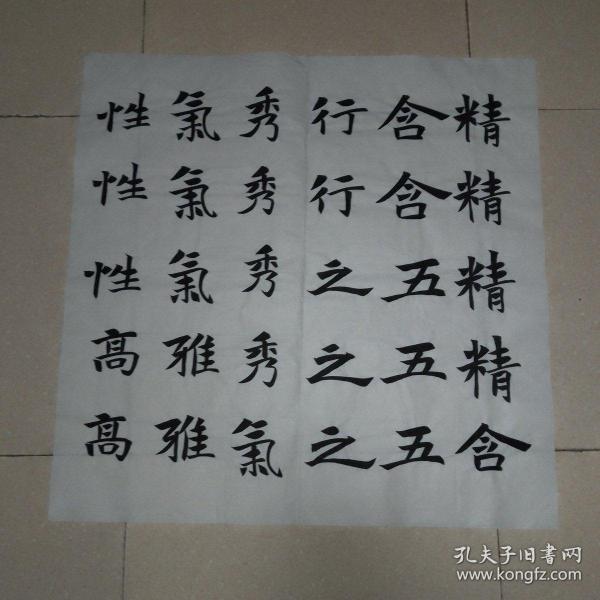 精精精精含
含含五五五
行行之之之
秀秀秀秀氣
氣氣氣雅雅
性性性高高
孔夫子旧書网
www.kongfz.com